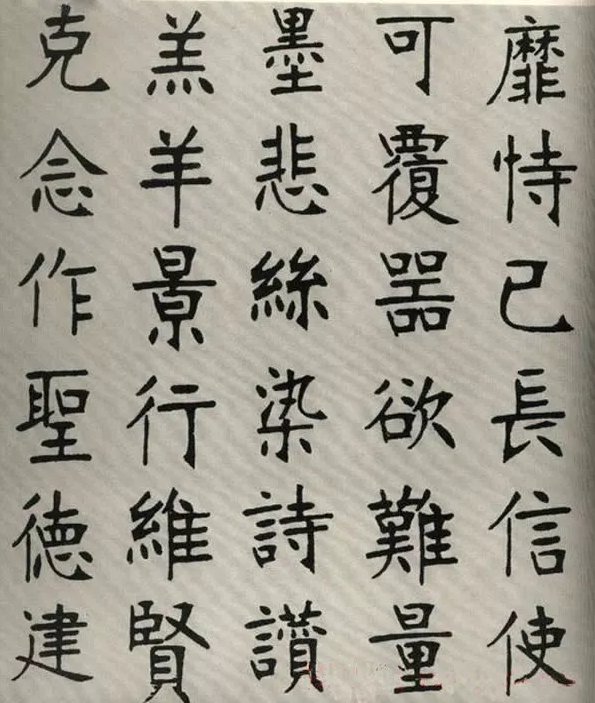 靡恃己長信使
可覆器欲難量
墨悲絲染詩讚
羔羊景行維賢
克念作聖德建